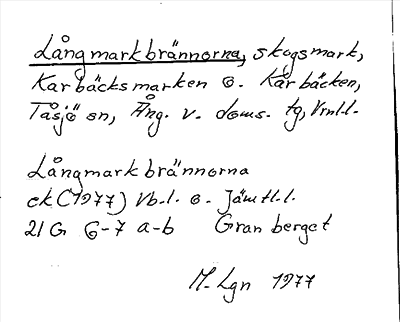 Långmarkbrännorna, skogsmark,
Karbäcksmarken o. Kårbäcken,
Tåsjö sn, Ång. v. doms. tg, Vrnl.l.
Långmarkbrännorna
ek (1977) Vb.l. o. Jämtl.l.
21 G 6-7 a-b Granberget
M. Lgn 1977